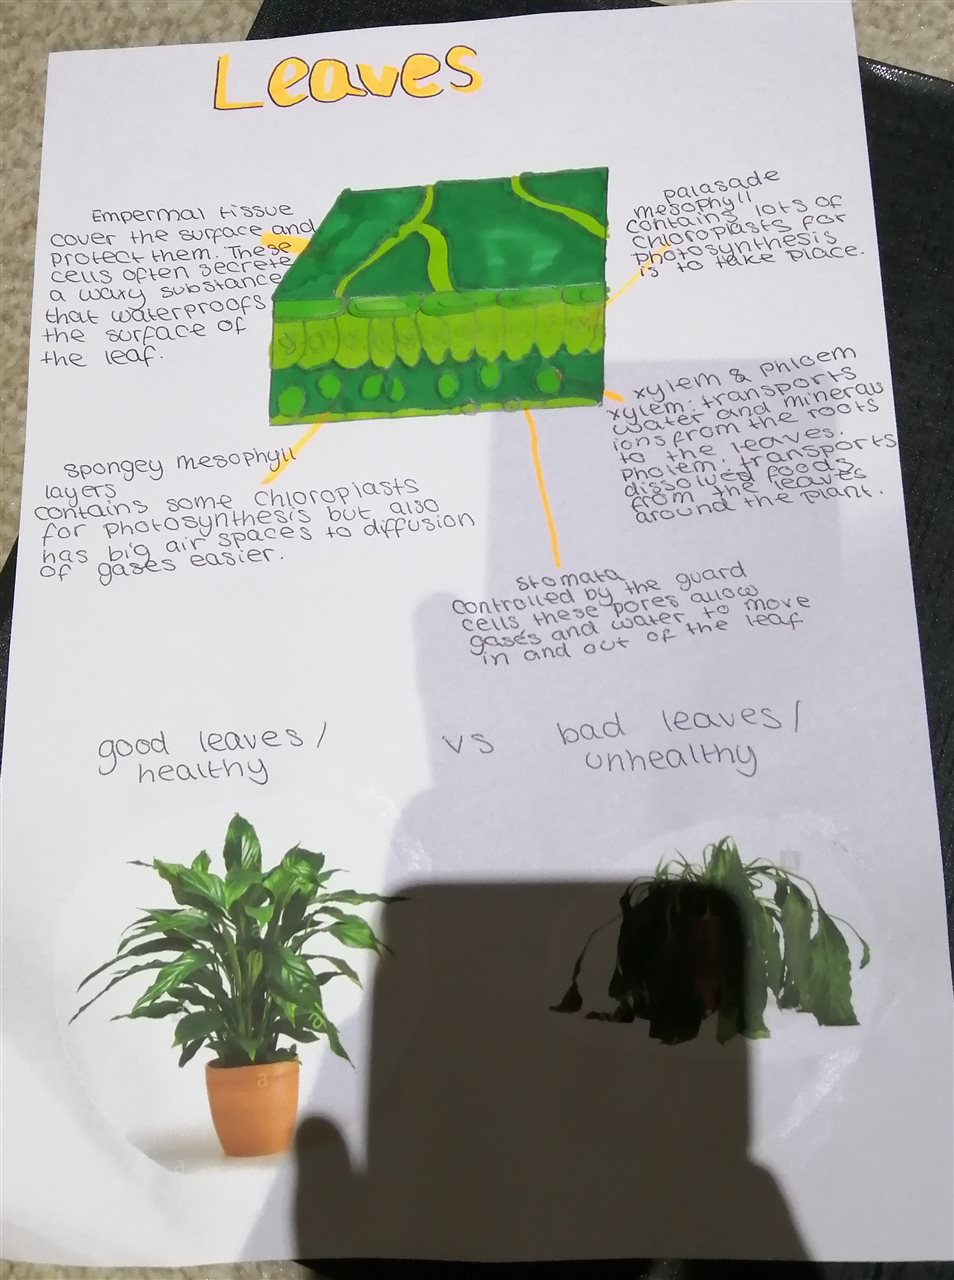 Leaves
Empermal tissue
cover the surface and
protect them. These
cells often secrete
a waxy substance
that waterproofs
the surface of
the leaf.
palasade
mesophyll
contains lots of
chloroplasts for
photosynthesis
is to take place.
xylem & phloem
xylem: transports
water and minerals
ions from the roots
to the leaves.
Pholem: transports
dissolved foods
from the leaves
around the plant.
spongey mesophyll
layers
contains some chloroplasts
for photosynthesis but also
has big air spaces to diffusion
of gases easier.
stomata
controlled by the guard
cells these pores allow
gases and water to move
in and out of the leaf
good leaves /
healthy
vs
bad leaves /
unhealthy
a
a
a